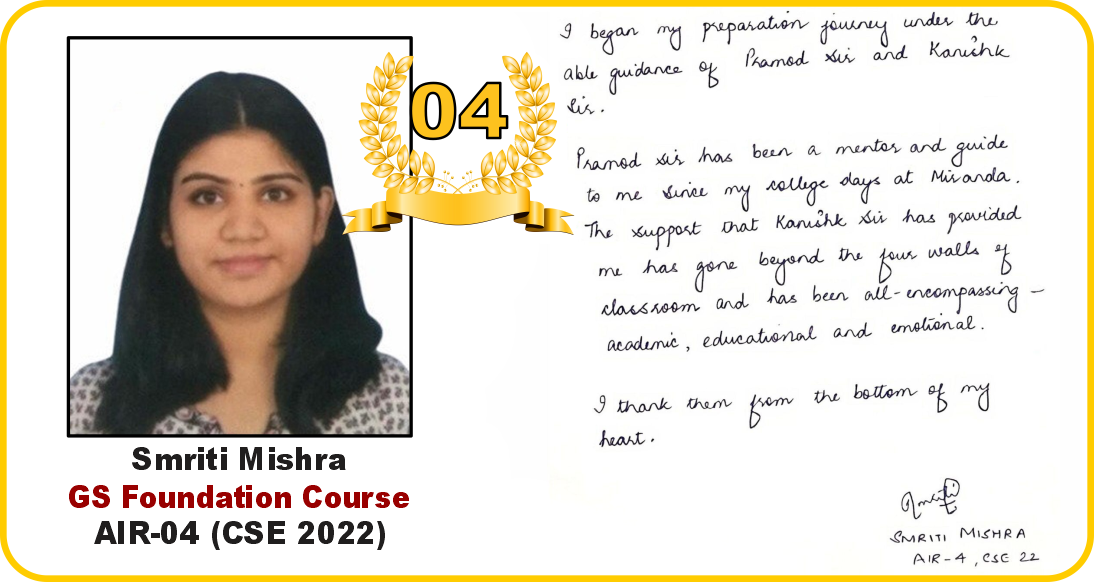 04
Smriti Mishra
GS Foundation Course
AIR-04 (CSE 2022)
I began my preparation journey under the
able guidance of Pramod Sir and Kanishk
Sir.
Pramod Sir has been a mentor and guide
to me since my college days at Miranda.
The support that Kanishk Sir has provided
me has gone beyond the four walls of
classroom and has been all-encompassing –
academic, educational and emotional.
I thank them from the bottom of my
heart.
Smriti
SMRITI MISHRA
AIR-4, CSE 22